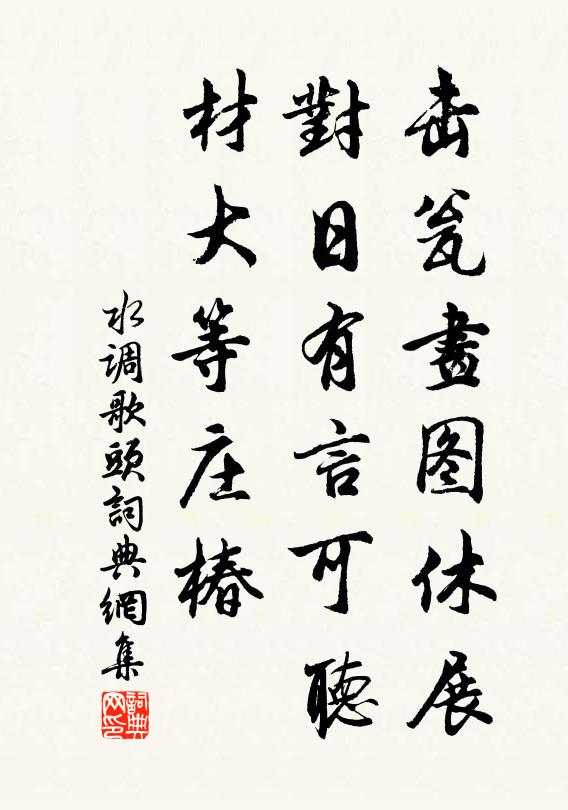 击瓮畫图休展
對日有言可聽
材大等庄椿
水调歌頭詞典網集
詞典
网印